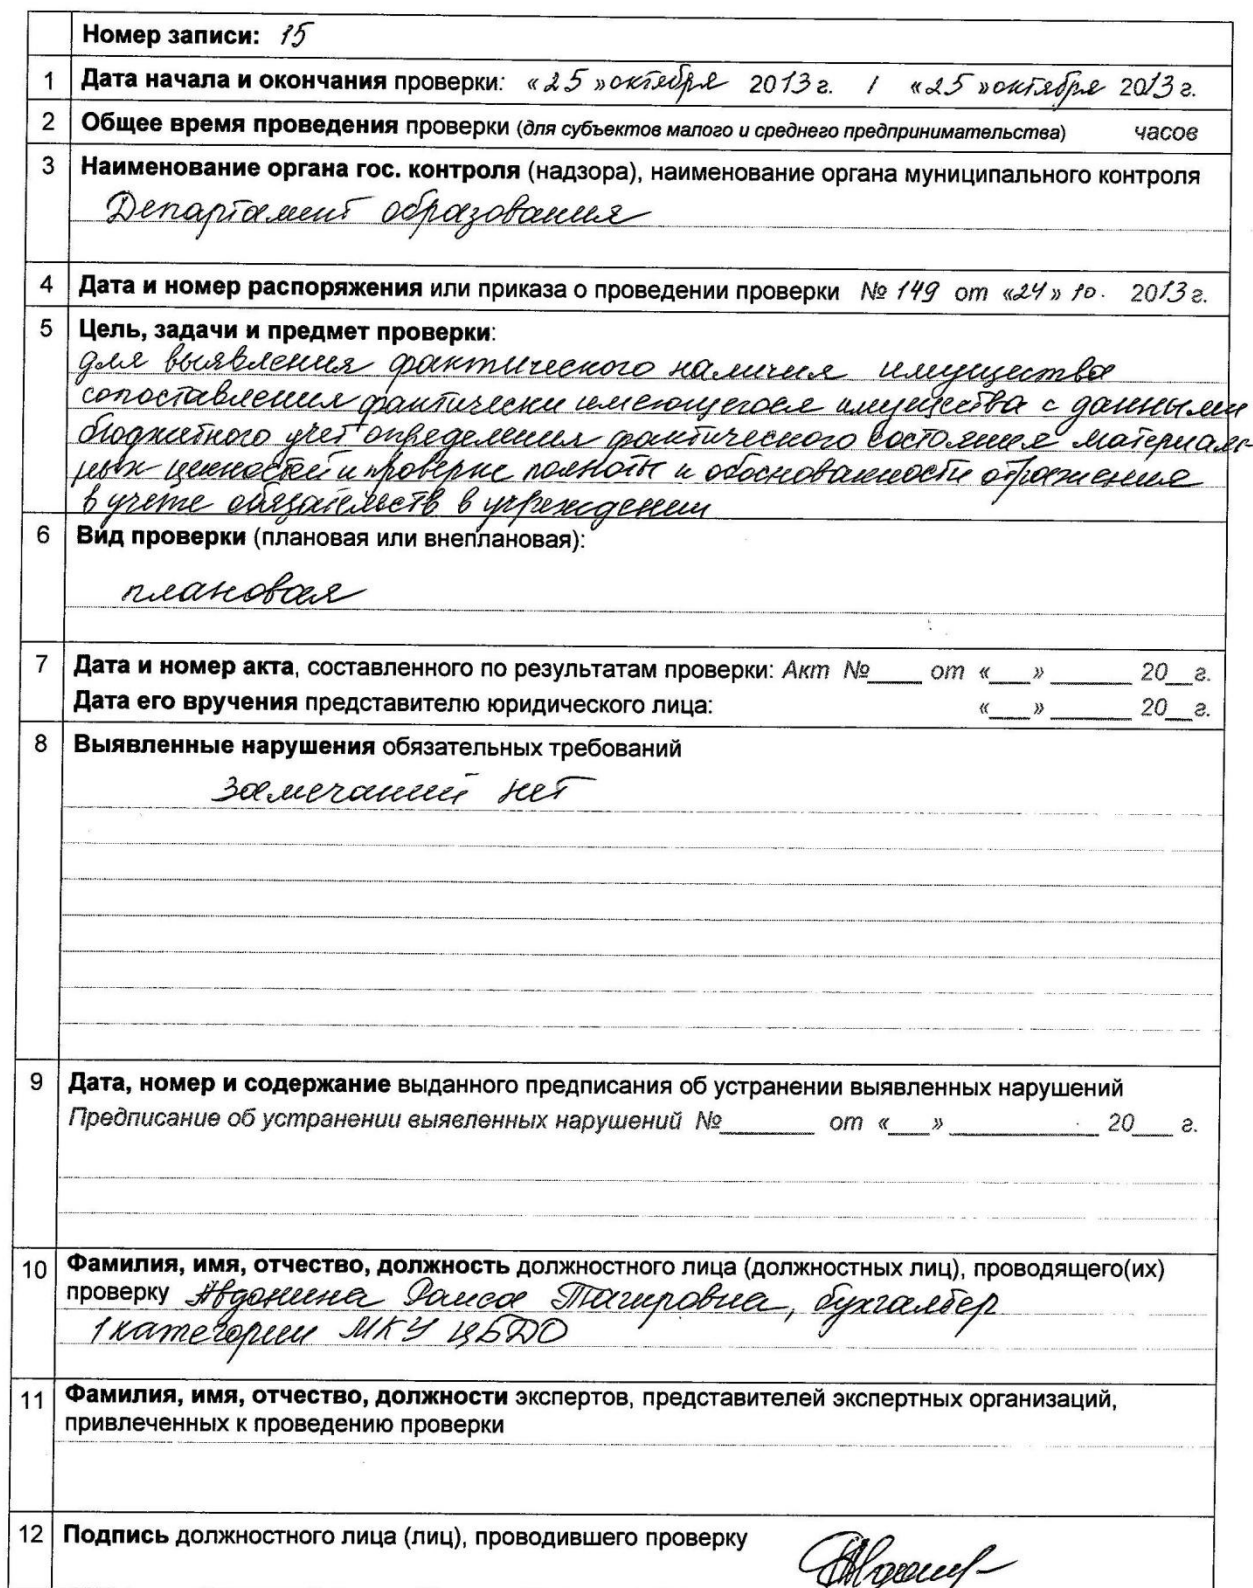 Номер записи: 15
1 Дата начала и окончания проверки: «25» октября 2013 г. / «25» октября 2013 г.
2 Общее время проведения проверки (для субъектов малого и среднего предпринимательства) часов
3 Наименование органа гос. контроля (надзора), наименование органа муниципального контроля
Департамент образования
4 Дата и номер распоряжения или приказа о проведении проверки № 149 от «24» 10. 2013 г.
5 Цель, задачи и предмет проверки:
для выявления фактического наличия имущества
сопоставления фактически имеющегося имущества с данными
бюджетного учет определения фактического состояния материаль-
ных ценностей и проверке полноты и обоснованности отражения
в учете обязательств в учреждении
6 Вид проверки (плановая или внеплановая):
плановая
7 Дата и номер акта, составленного по результатам проверки: Акт №____ от «___» ______ 20__г.
Дата его вручения представителю юридического лица: «___» ______ 20__г.
8 Выявленные нарушения обязательных требований
Замечаний нет
9 Дата, номер и содержание выданного предписания об устранении выявленных нарушений
Предписание об устранении выявленных нарушений №_______ от «___» ___________ 20___ г.
10 Фамилия, имя, отчество, должность должностного лица (должностных лиц), проводящего(их)
проверку Авдонина Раиса Тагировна, бухгалтер
1 категории МКУ ЦБДО
11 Фамилия, имя, отчество, должности экспертов, представителей экспертных организаций,
привлеченных к проведению проверки
12 Подпись должностного лица (лиц), проводившего проверку